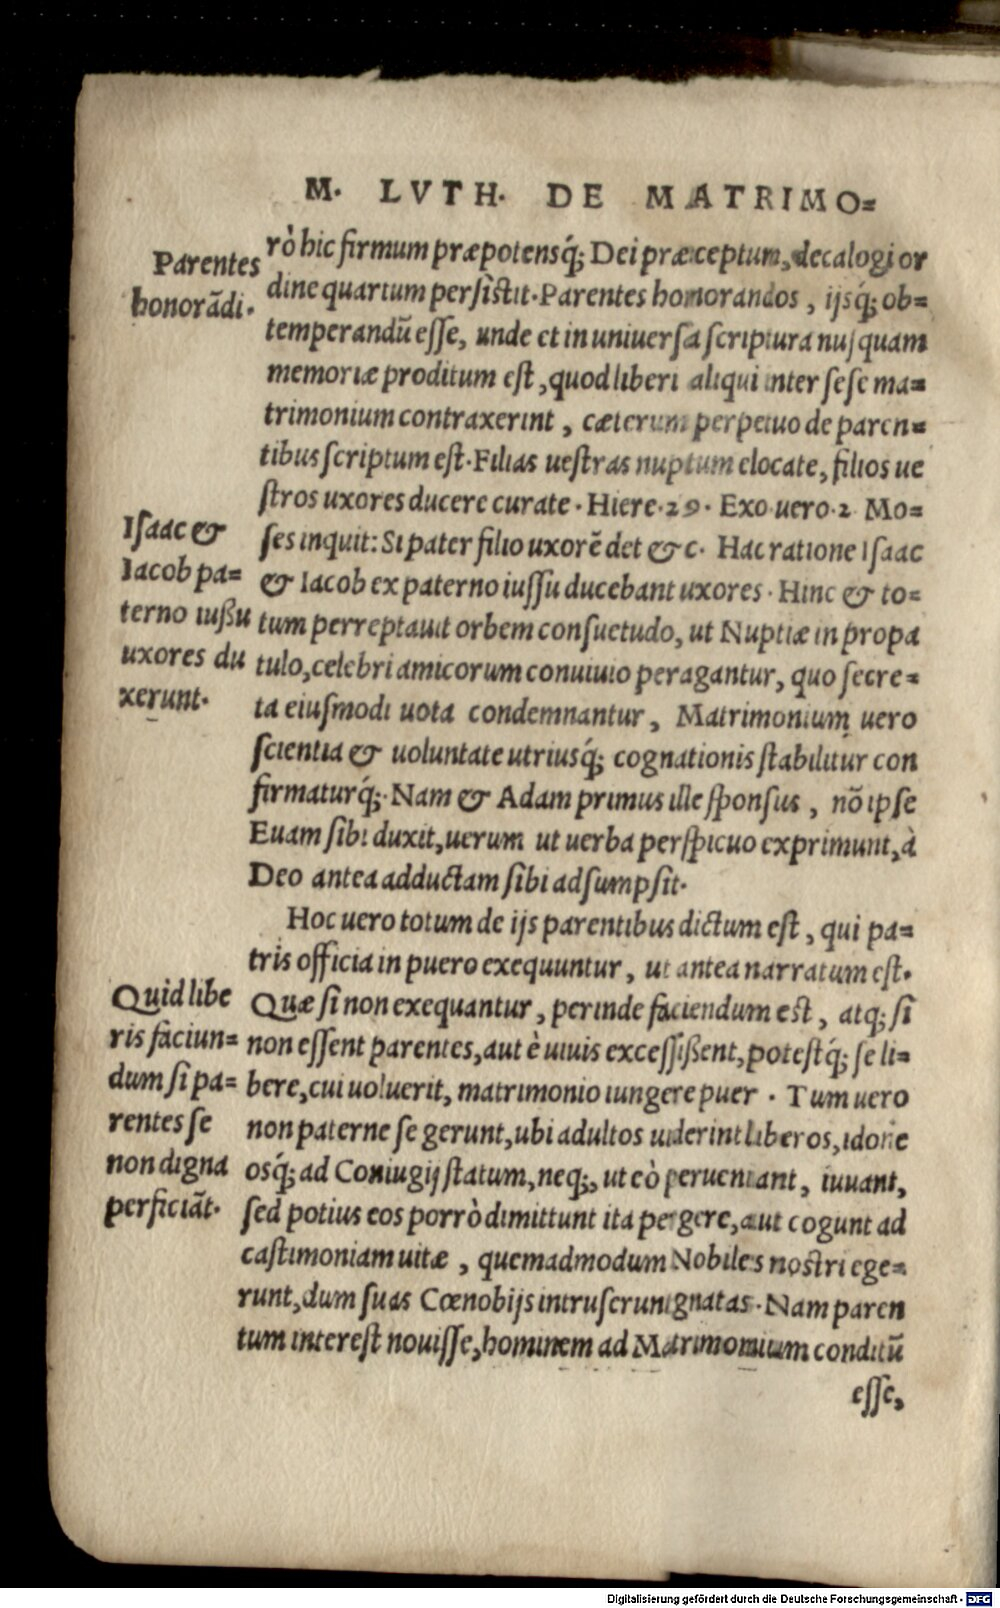 M. LVTH. DE MATRIMO=
Parentes
honorādi.
rò hic firmum præpotensq́; Dei præceptum, decalogi or
dine quartum persistit. Parentes honorandos, ijsq́; ob=
temperandū esse, unde et in uniuersa scriptura nusquam
memoriæ proditum est, quod liberi aliqui inter sese ma=
trimonium contraxerint, cæterum perpetuo de paren=
tibus scriptum est. Filias uestras nuptum elocate, filios ue
stros uxores ducere curate. Hiere. 29. Exo uero. 2 Mo=
Isaac &
Iacob pa=
terno iussu
uxores du
xerunt.
ses inquit: Si pater filio uxorē det & c. Hac ratione Isaac
& Iacob ex paterno iussu ducebant uxores. Hinc & to=
tum perreptauit orbem consuetudo, ut Nuptiæ in propa
tulo, celebri amicorum conuiuio peragantur, quo secre=
ta eiusmodi uota condemnantur, Matrimonium uero
scientia & uoluntate utriusq́; cognationis stabilitur con
firmaturq́;. Nam & Adam primus ille sponsus, nō ipse
Euam sibi duxit, uerum ut uerba perspicuo exprimunt, à
Deo antea adductam sibi adsumpsit.
Hoc uero totum de ijs parentibus dictum est, qui pa=
tris officia in puero exequuntur, ut antea narratum est.
Quid libe
ris faciun=
dum si pa=
rentes se
non digna
perficiāt.
Quæ si non exequantur, perinde faciendum est, atq; si
non essent parentes, aut è uiuis excessissent, potestq́; se li=
bere, cui uoluerit, matrimonio iungere puer. Tum uero
non paterne se gerunt, ubi adultos uiderint liberos, idone
osq́; ad Coniugij statum, neq;, ut eò perueniant, iuuant,
sed potius eos porrò dimittunt ita pergere, aut cogunt ad
castimoniam uitæ, quemadmodum Nobiles nostri ege=
runt, dum suas Cœnobijs intruserunt gnatas. Nam paren
tum interest nouisse, hominem ad Matrimonium conditū
esse,
Digitalisierung gefördert durch die Deutsche Forschungsgemeinschaft - DFG